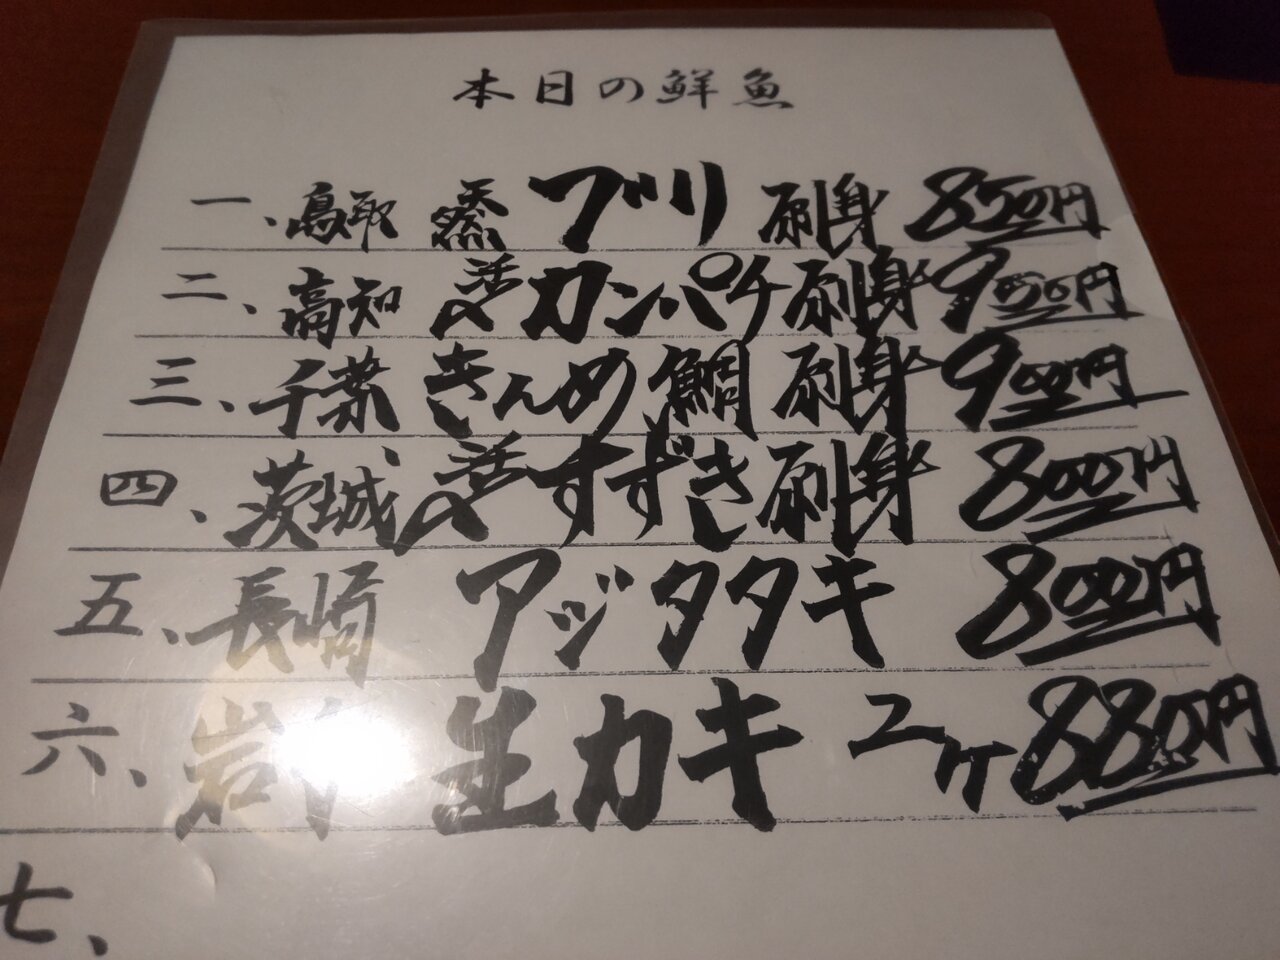 本日の鮮魚
一、鳥取 天然 ブリ 刺身 850円
二、高知 活〆 カンパチ 刺身 950円
三、千葉 きんめ鯛 刺身 900円
四、茨城 活〆 すずき 刺身 800円
五、長崎 アジタタキ 800円
六、岩手 生カキ 2ヶ 880円
七、